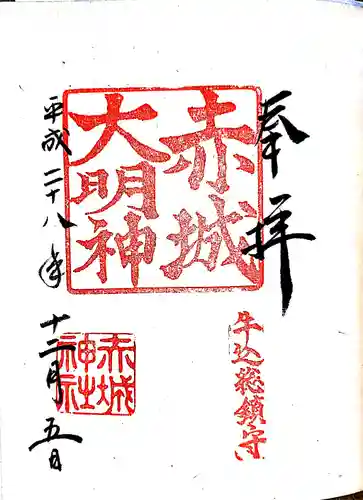 奉拝
牛込総鎮守
赤城
大明神
赤城
神社
平成二十八年十二月五日